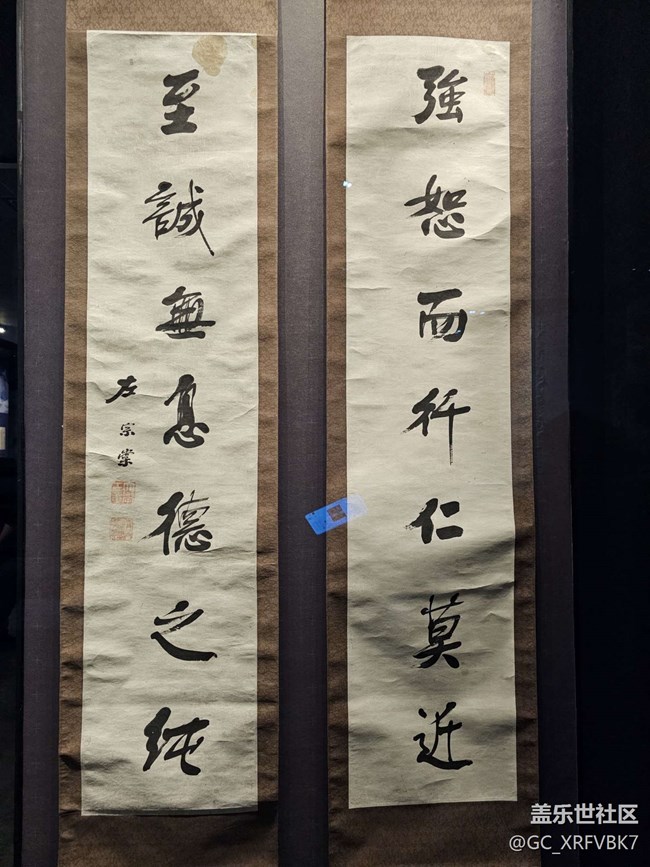 強恕而行仁莫近
至誠無息德之純
左宗棠
盖乐世社区
@GC_XRFVBK7